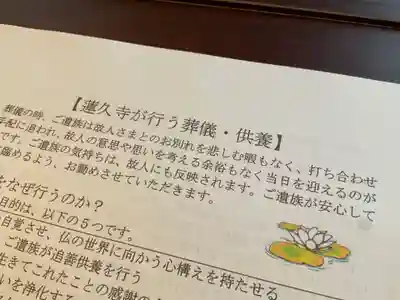 【蓮久寺が行う葬儀・供養】
葬儀の時、ご遺族は故人さまとのお別れを悲しむ暇もなく、打ち合わせ
手配に追われ、故人の意思や思いを考える余裕もなく当日を迎えるのが
です。ご遺族の気持ちは、故人にも反映されます。ご遺族が安心して
臨めるよう、お勤めさせていただきます。
をなぜ行うのか？
目的は、以下の５つです。
自覚させ、仏の世界に向かう心構えを持たせる
ご遺族が追善供養を行う
生きてこれたことの感謝の
いを浄化する